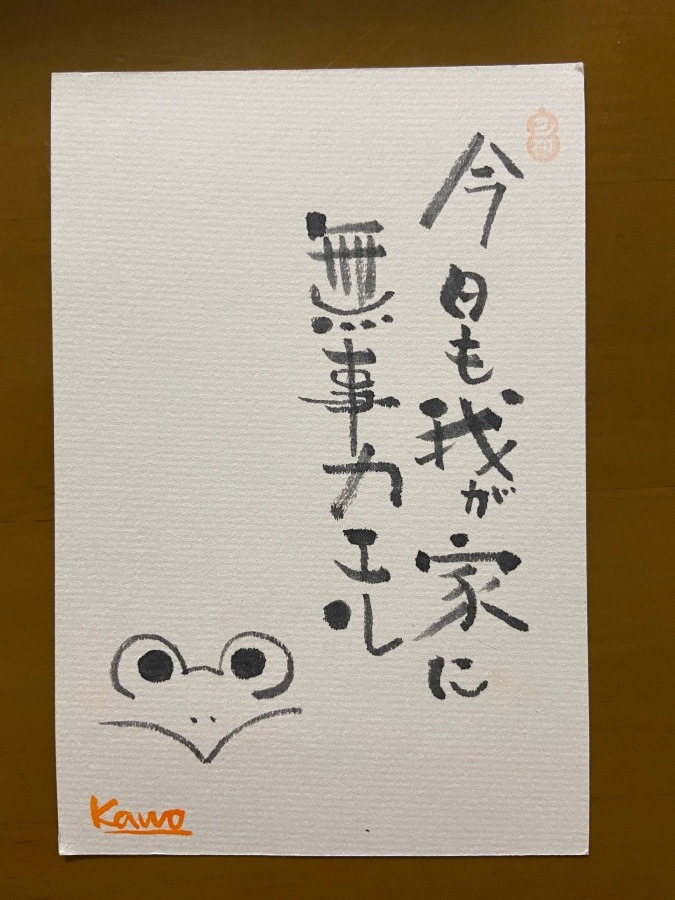 今日も我が家に
無事カエル
Kawo